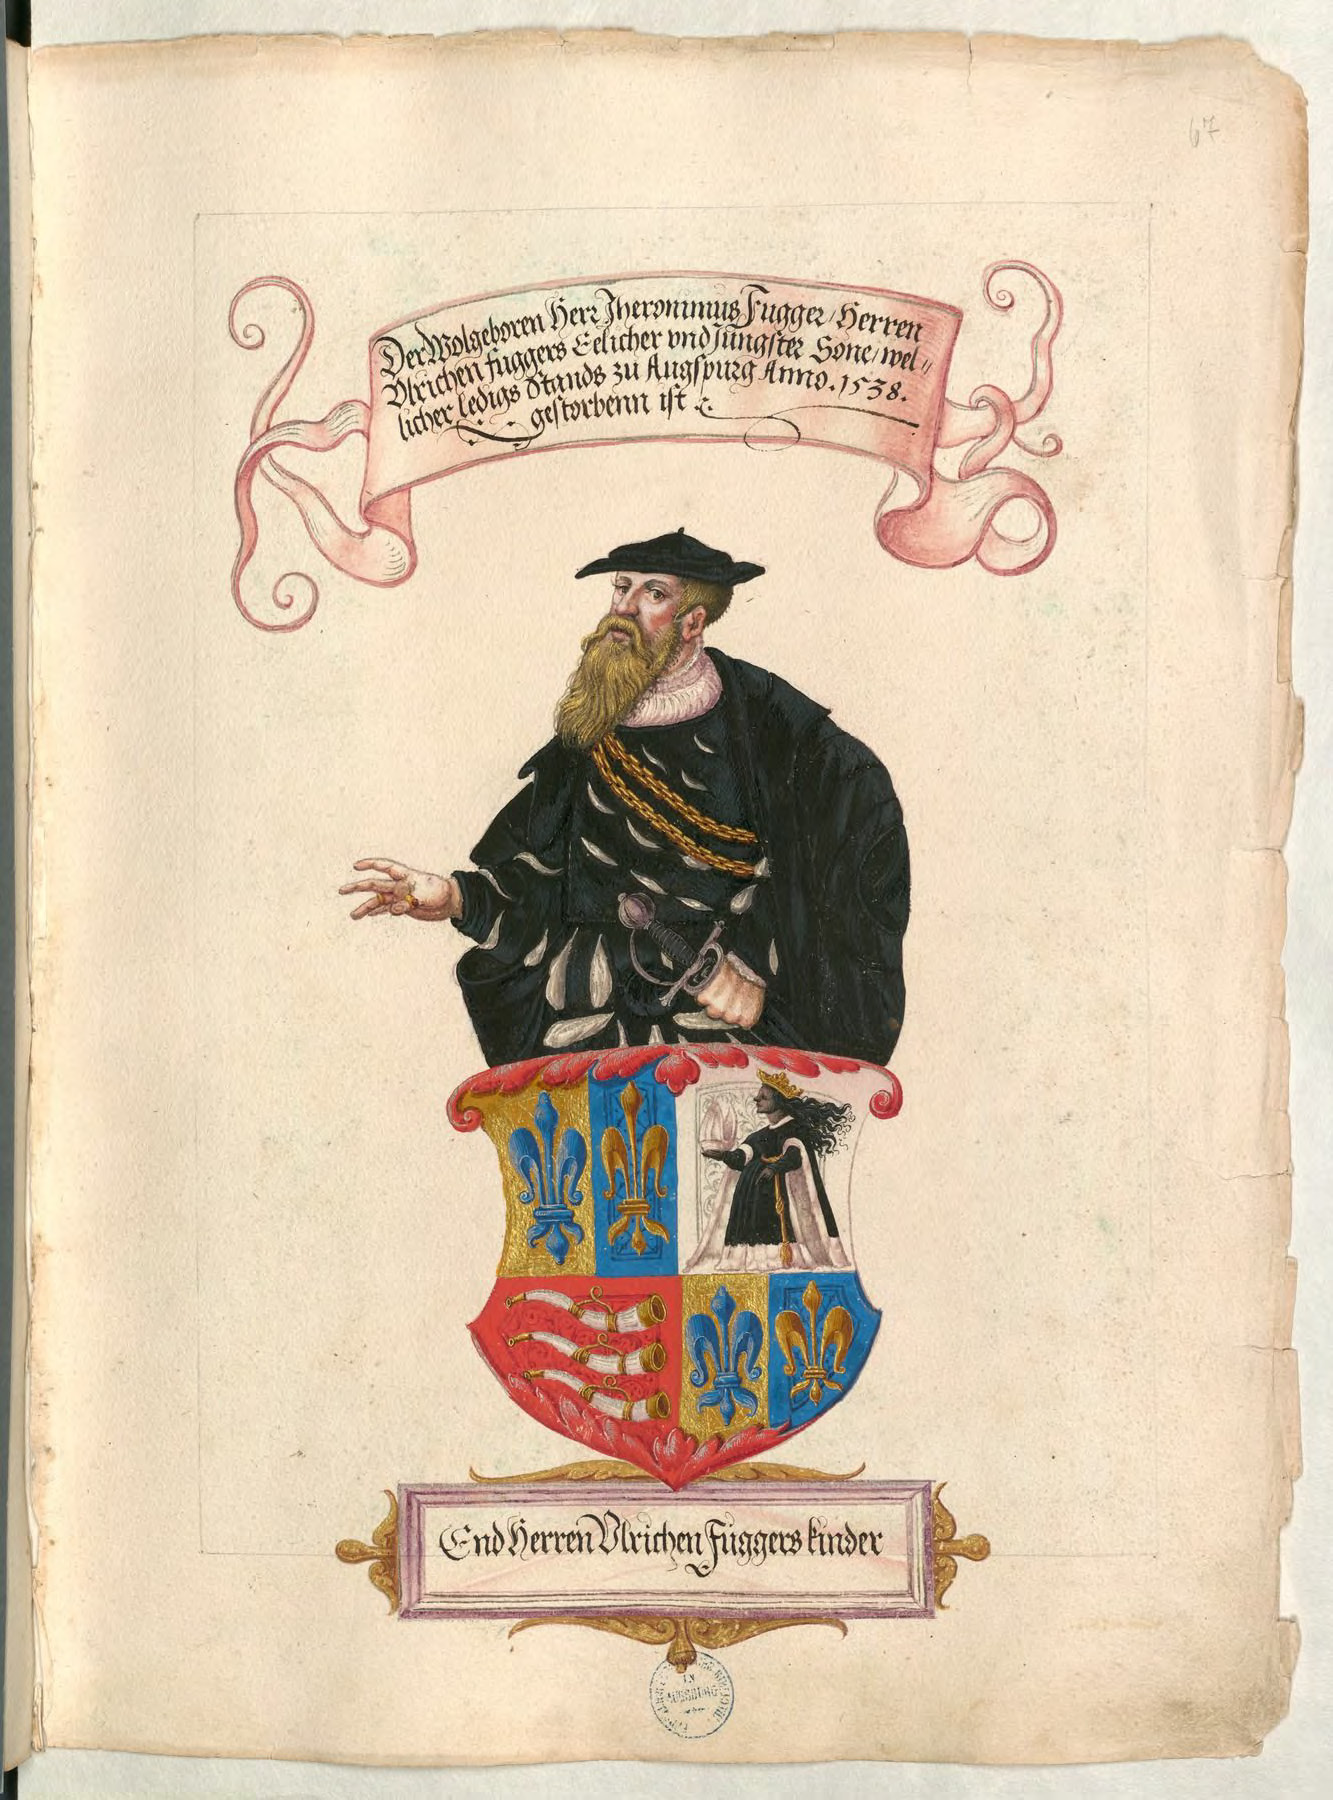 67
Der Wolgeboren Herr Jheronimus Fugger / Herren
Vlrichen fuggers Eelicher vnd Jungster Sone / wel〃
licher ledigs Stands zu Augspurg Anno . 1538 .
gestorbenn ist
End Herren Vlrichen Fuggers kinder
IN
AUGSBURG